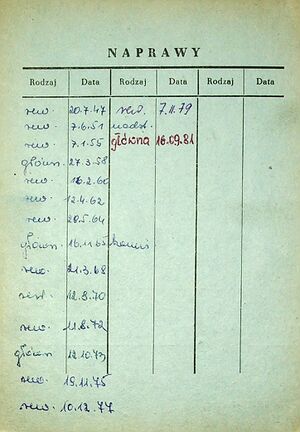 NAPRAWY
Rodzaj Data Rodzaj Data Rodzaj Data
rew. 20.7.47 rew. 7.11.79
rew. 7.6.51
rew. 7.1.55 główna 16.09.81
główn. 27.3.58
rew. 16.2.60
rew. 12.4.62
rew. 20.5.64
główn. 16.11.65
rew. 21.3.68
12.8.70
rew. 11.8.72
główn 12.10.73
rew. 19.11.75
rew. 10.12.77